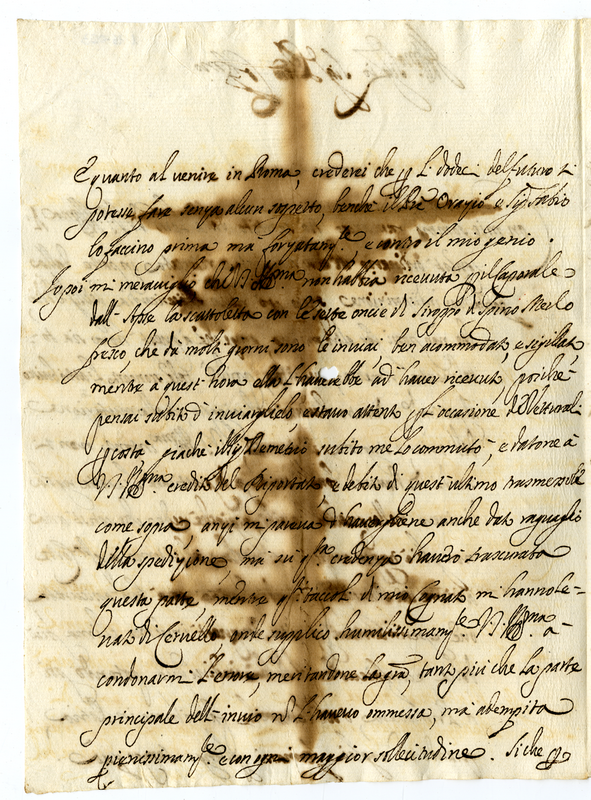 E quanto al venire in Roma, crederei che p li dodeci del futuro si
potesse fare senza alcun sospetto, benche il Pre Orazio e Sig Fabio
lo faccino prima ma forzatamte e contro il mio genio.
Io poi mi meraviglio che V.S. Illma non habbia ricevuta p il Caporale
dall' Asse la scattoletta con le sette oncie di Siroppo di Spino Merlo
fresco che da molti giorni sono le inviai, ben acommodata, e sigillata,
mentre a quest' hora ella l'haverebbe ad' haver ricevuta, poiche
pensai subito d' inviarglielo, e stavo attento coll' occasione de Vetturali
p costà, giache il Sig Demetrio subito me lo commutò, e datone à
V.S. Illma credito del Riportato e debito di quest' ultimo trasmessole
come sopra, anzi mi pareva d' havergliene anche dato raguaglio
della spedizione, ma su qsta credenza haverò trascurata
questa parte, mentre qsti taccoli di mio Cognato mi hanno le=
vato di Cervello onde supplico humilissimamte V.S. Illma a
condonarmi l'errore, meritandone la gra, tanto più che la parte
principale dell' invio nō l'havevo ommessa, mà adempita
pienissimamte e con ogni maggior sollecitudine. Siche p